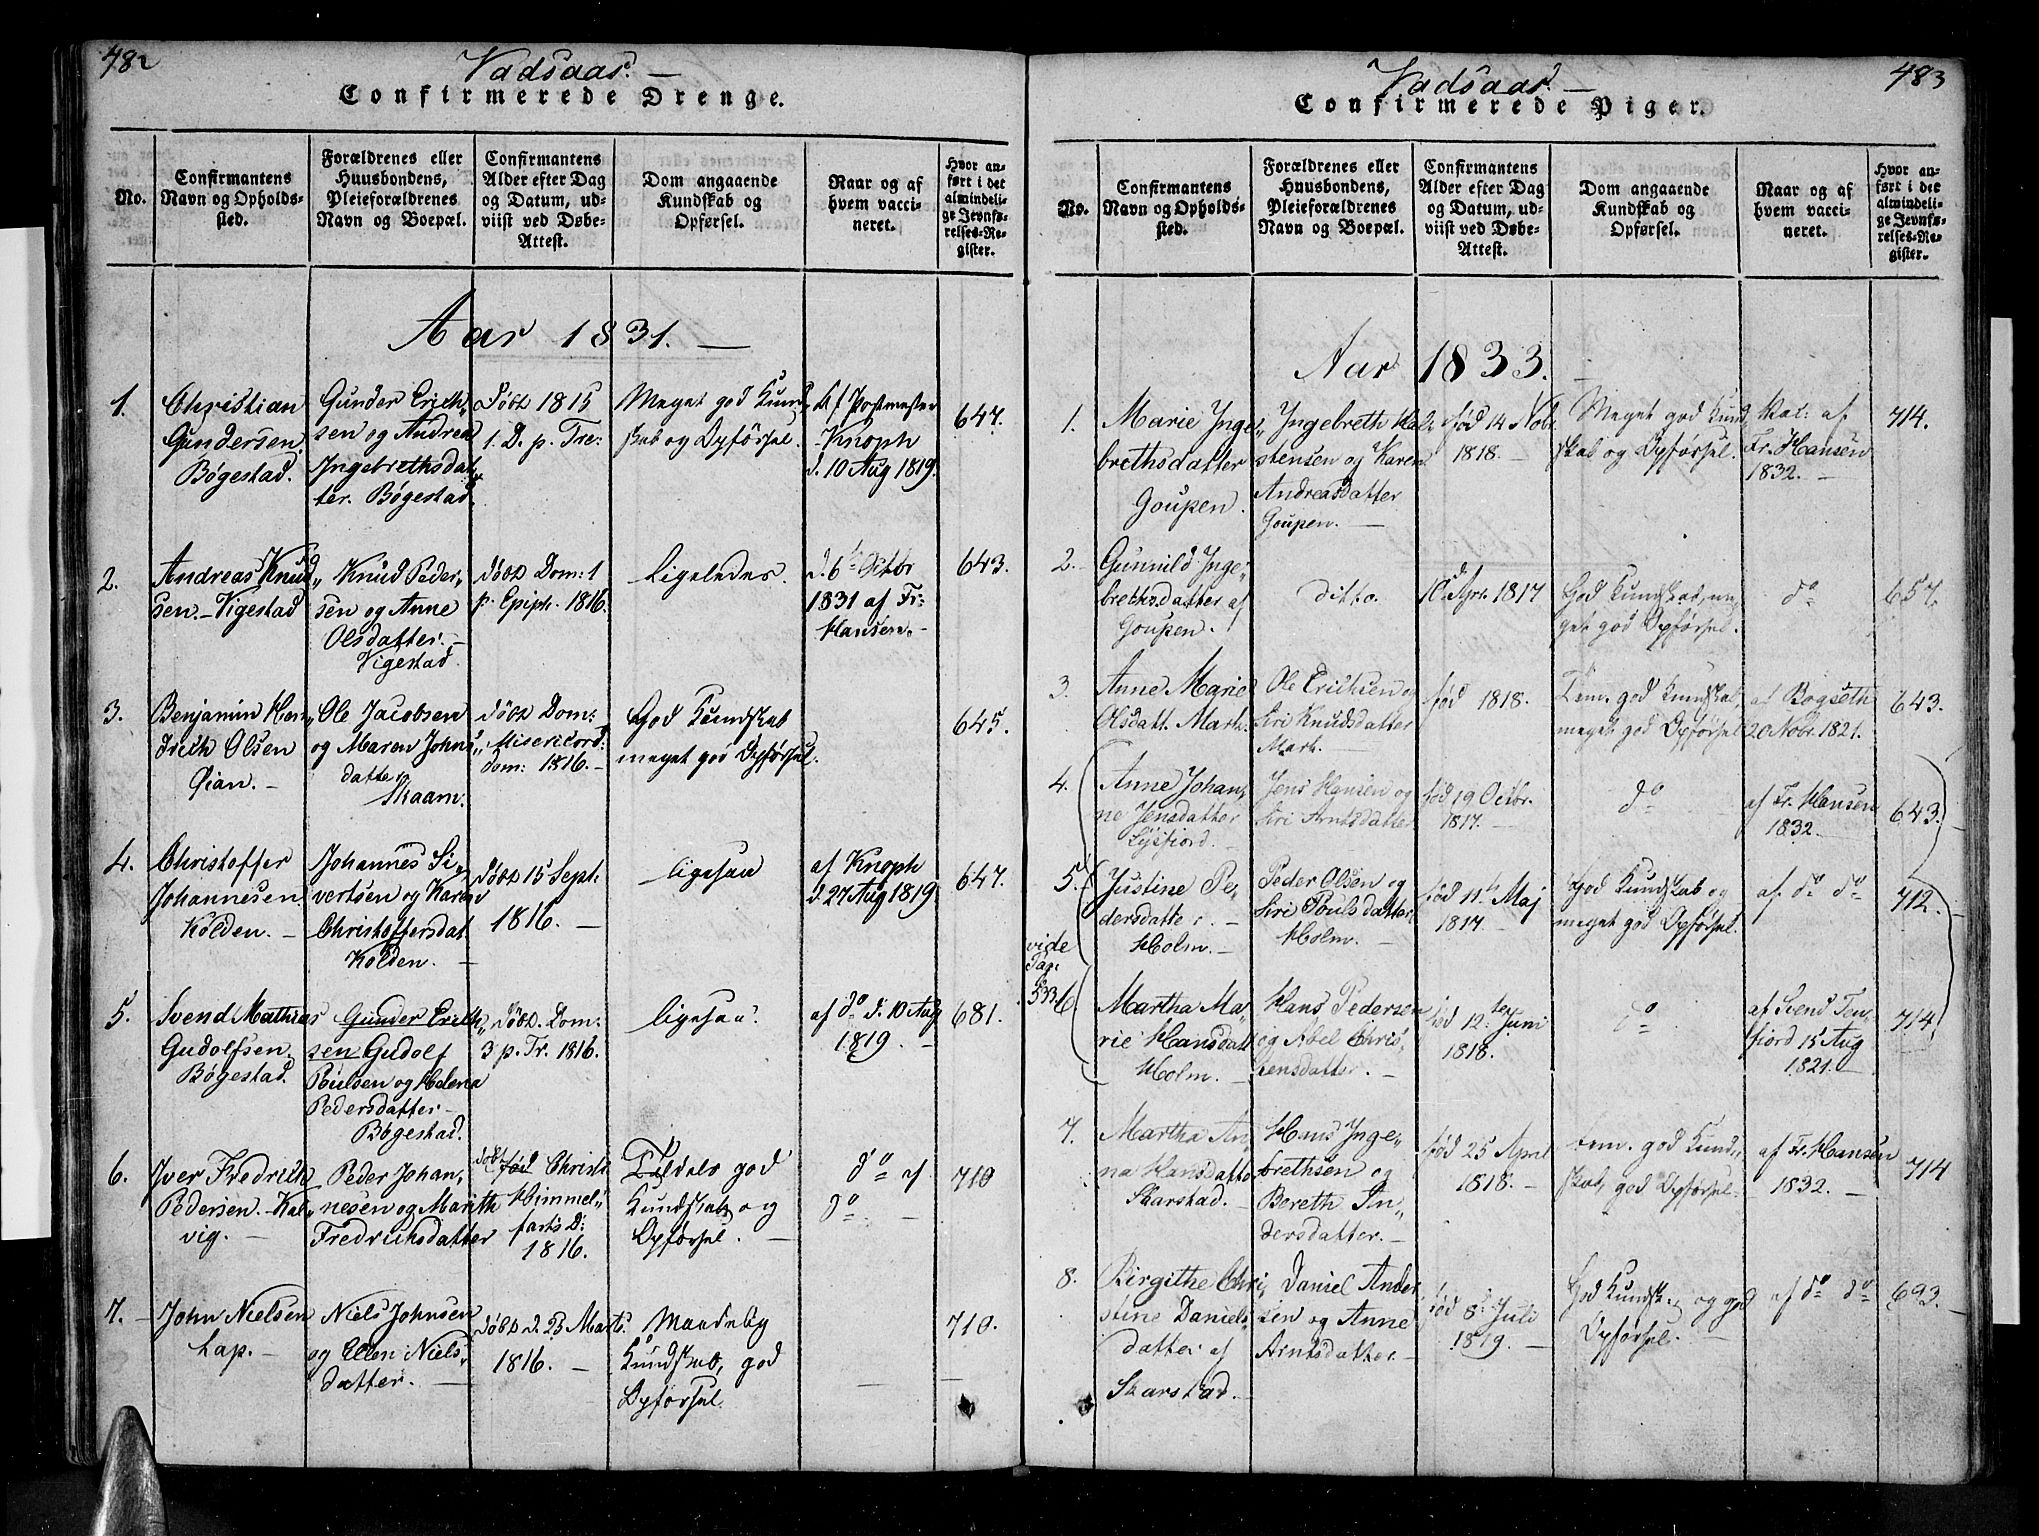 482
Vadsaas. —
Confirmerede Drenge.
No.
Confirmantens
Navn og Opholds-
sted.
Forældrenes eller
Huusbondens,
Pleieforældrenes
Navn og Boepæl.
Confirmantens
Alder efter Dag
og Datum, ud-
viist ved Døbe-
Attest.
Dom angaaende
Kundskab og
Opførsel.
Naar og af
hvem vacci-
neret.
Hvor an-
ført i det
almindeli-
ge Jevnfø-
relses-Re-
gister.
Aar 1831. —
1.
Christian
Gundersen
Bøgestad.
Gunder Erich„
sen og Andrea
Ingebrethsdat„
ter. Bøgestad.
Døbt 1815
1. D. p. Tre:
Meget god Kund„
skab og Opførsel.
Af Postmester
Knoph
d. 10 Aug 1819.
647.
2.
Andreas Knud„
sen. – Vigestad
Knud Peder„
sen og Anne
Olsdatter. –
Vigestad.
døbt Dom: 1
p. Epiph. 1816.
Ligeledes.
d. 6te Octbr
1831 af Fr:
Hansen. –
643.
3.
Benjamin Hen„
drich Olsen
Øian. –
Ole Jacobsen
og Maren Johns„
datter
Skaam.
døbt Dom:
Misericord:
dom: 1816. –
God Kundskab
meget god Opførsel.
645.
4.
Christoffer
Johannesen
Kolden. –
Johannes Si„
vertsen og Karen
Christoffersdat.
Kolden. –
Døbt 15 Sept:
1816. –
ligesaa
af Knoph
d. 27 Aug 1819
647.
5.
Svend Mathias
Gudolfsen.
Bøgestad.
Gunder Erich„
sen Gudolf
Poulsen og Helena
Pedersdatter –
Bøgestad.
Døbt. Dom:
3 p. Tr. 1816.
ligesaa.
af do d. 10 Aug
1819. –
681.
6.
Iver Fredrich
Pedersen. – Kal„
vig. –
Peder Johan„
nesen og Marith
Fredrichsdatter
døbt
fød Christi
Himmel„
farts D:
1816.
Tildels god
Kundskab og
Opførsel. –
do af
do. –
710
7. –
John Nielsen
Lap. –
Niels Johnsen
og Ellen Niels„
datter. –
Døbt d. 23 Marts.
1816. –
Maadelig
Kundskab, god
Opførsel.
710.
483
Vadsaas. —
Confirmerede Piger.
No.
Confirmantens
Navn og Opholds-
sted.
Forældrenes eller
Huusbondens,
Pleieforældrenes
Navn og Boepæl.
Confirmantens
Alder efter Dag
og Datum, ud-
viist ved Døbe-
Attest.
Dom angaaende
Kundskab og
Opførsel.
Naar og af
hvem vacci-
neret.
Hvor an-
ført i det
almindeli-
ge Jevnfø-
relses-Re-
gister.
Aar 1833.
1.
Marie Inge„
brethsdatter
Goupen.
Ingebreth
stensen og Karen
Andreasdatter
Goupen. –
fød 14 Nobr.
1818. –
Meget god Kund„
skab og Opførsel.
Vac: af
Fr. Hansen
1832. –
714.
2.
Gunnild Inge„
brethsdatter af
Goupen.
ditto.
10 Apr. 1817
God Kundskab, me„
get god Opførsel.
do
657.
3.
Anne Marie
Olsdatt. Mark.
Ole Erichsen og
Siri Knudsdatter
Mark. –
fød 1818.
Tem. god Kundskab,
meget god Opførsel
af Bogseth
20 Nobr. 1821.
643.
4.
Anne Johan„
ne Jensdatter
Lysfiord. –
Jens Hansen og
Siri Arntsdatter
fød 19 Octbr.
1817. –
do
af Fr. Hansen
1832. –
643.
5.
Justine Pe„
dersdatter. –
Holm. –
Peder Olsen og
Siri Pouls datter.
Holm. –
fød 11te Maj
1817. –
God Kundskab og
meget god Opførsel.
af do do
712.
vide
Pag:
533.
6.
Martha Ma„
rie Hansdatt
Holm. –
Hans Pedersen
og Abel Chris„
tensdatter. –
fød 12ten Juni
1818.
do
af Svend Ten„
fiord 15 Aug
1821. –
714
7.
Martha An„
na Hansdatter
Skarstad. –
Hans Inge„
brethsen og
Bereth An„
dersdatter. –
fød 25 April
1818. –
tem. god Kund„
skab, god Opførsel. –
af Fr. Hansen
1832. –
714
8.
Birgithe Chri„
stine Daniels„
datter af
Skarstad. –
Daniel Ander
sen og Anne
Arntsdatter. –
fød 8de Juli
1819. –
God Kundsk. og god
Opførsel. –
af do do
693.